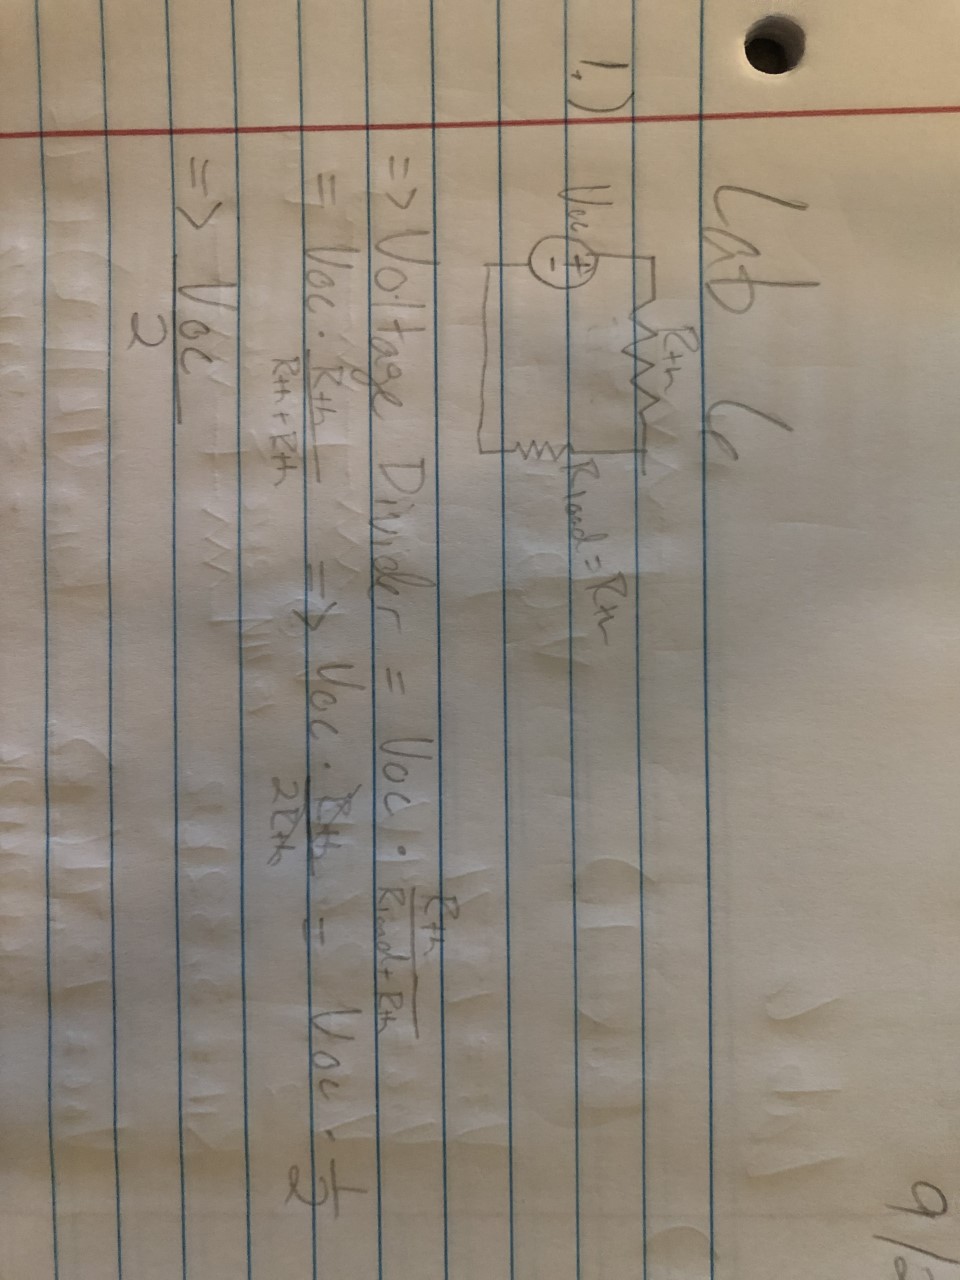 9/2
Lab 6
1.)
Rth
Voc
+
-
Rload = Rth
=> Voltage Divider = Voc · Rth / Rload + Rth
= Voc · Rth / Rth + Rth => Voc · Rth / 2Rth = Voc · 1/2
=> Voc / 2